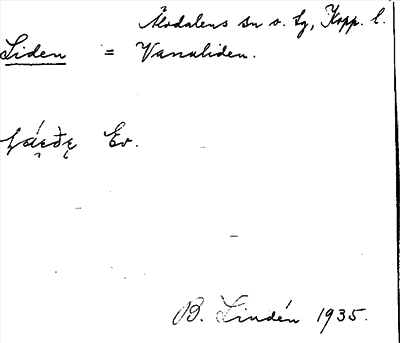 Älvdalens sn o. tg, Kopp. l.
Liden = Vanuliden.
Ev.
B. Lindén 1935.